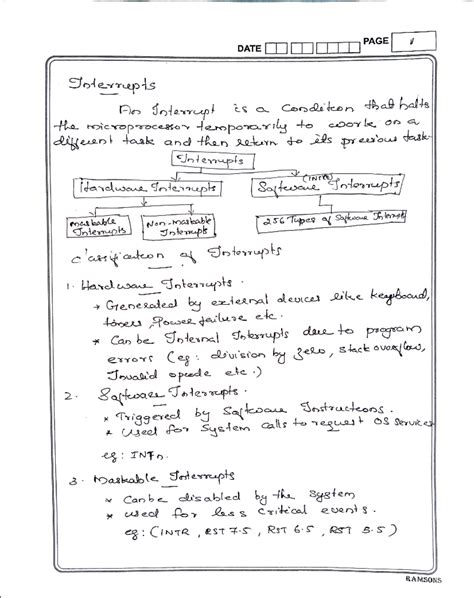 DATE PAGE 1
Interrupts
An Interrupt is a condition that halts
the microprocessor temporarily to work on a
different task and then return to its previous task.
Interrupts
Hardware Interrupts
(INTR)
Software Interrupts
Maskable Interrupts
Non-maskable Interrupts
256 Types of Software Interrupt
Classification of Interrupts
1. Hardware Interrupts.
→ Generated by external devices like keyboard,
timers, Power failure etc.
* Can be Internal Interrupts due to program
errors (eg: division by zero, stack overflow,
Invalid opcode etc.)
2. Software Interrupts.
* Triggered by Software Instructions.
* used for System calls to request OS services
eg: INTn.
3. Maskable Interrupts
* Can be disabled by the system
* used for less critical events.
eg: (INTR, RST 7.5, RST 6.5, RST 5.5)
RAMSONS